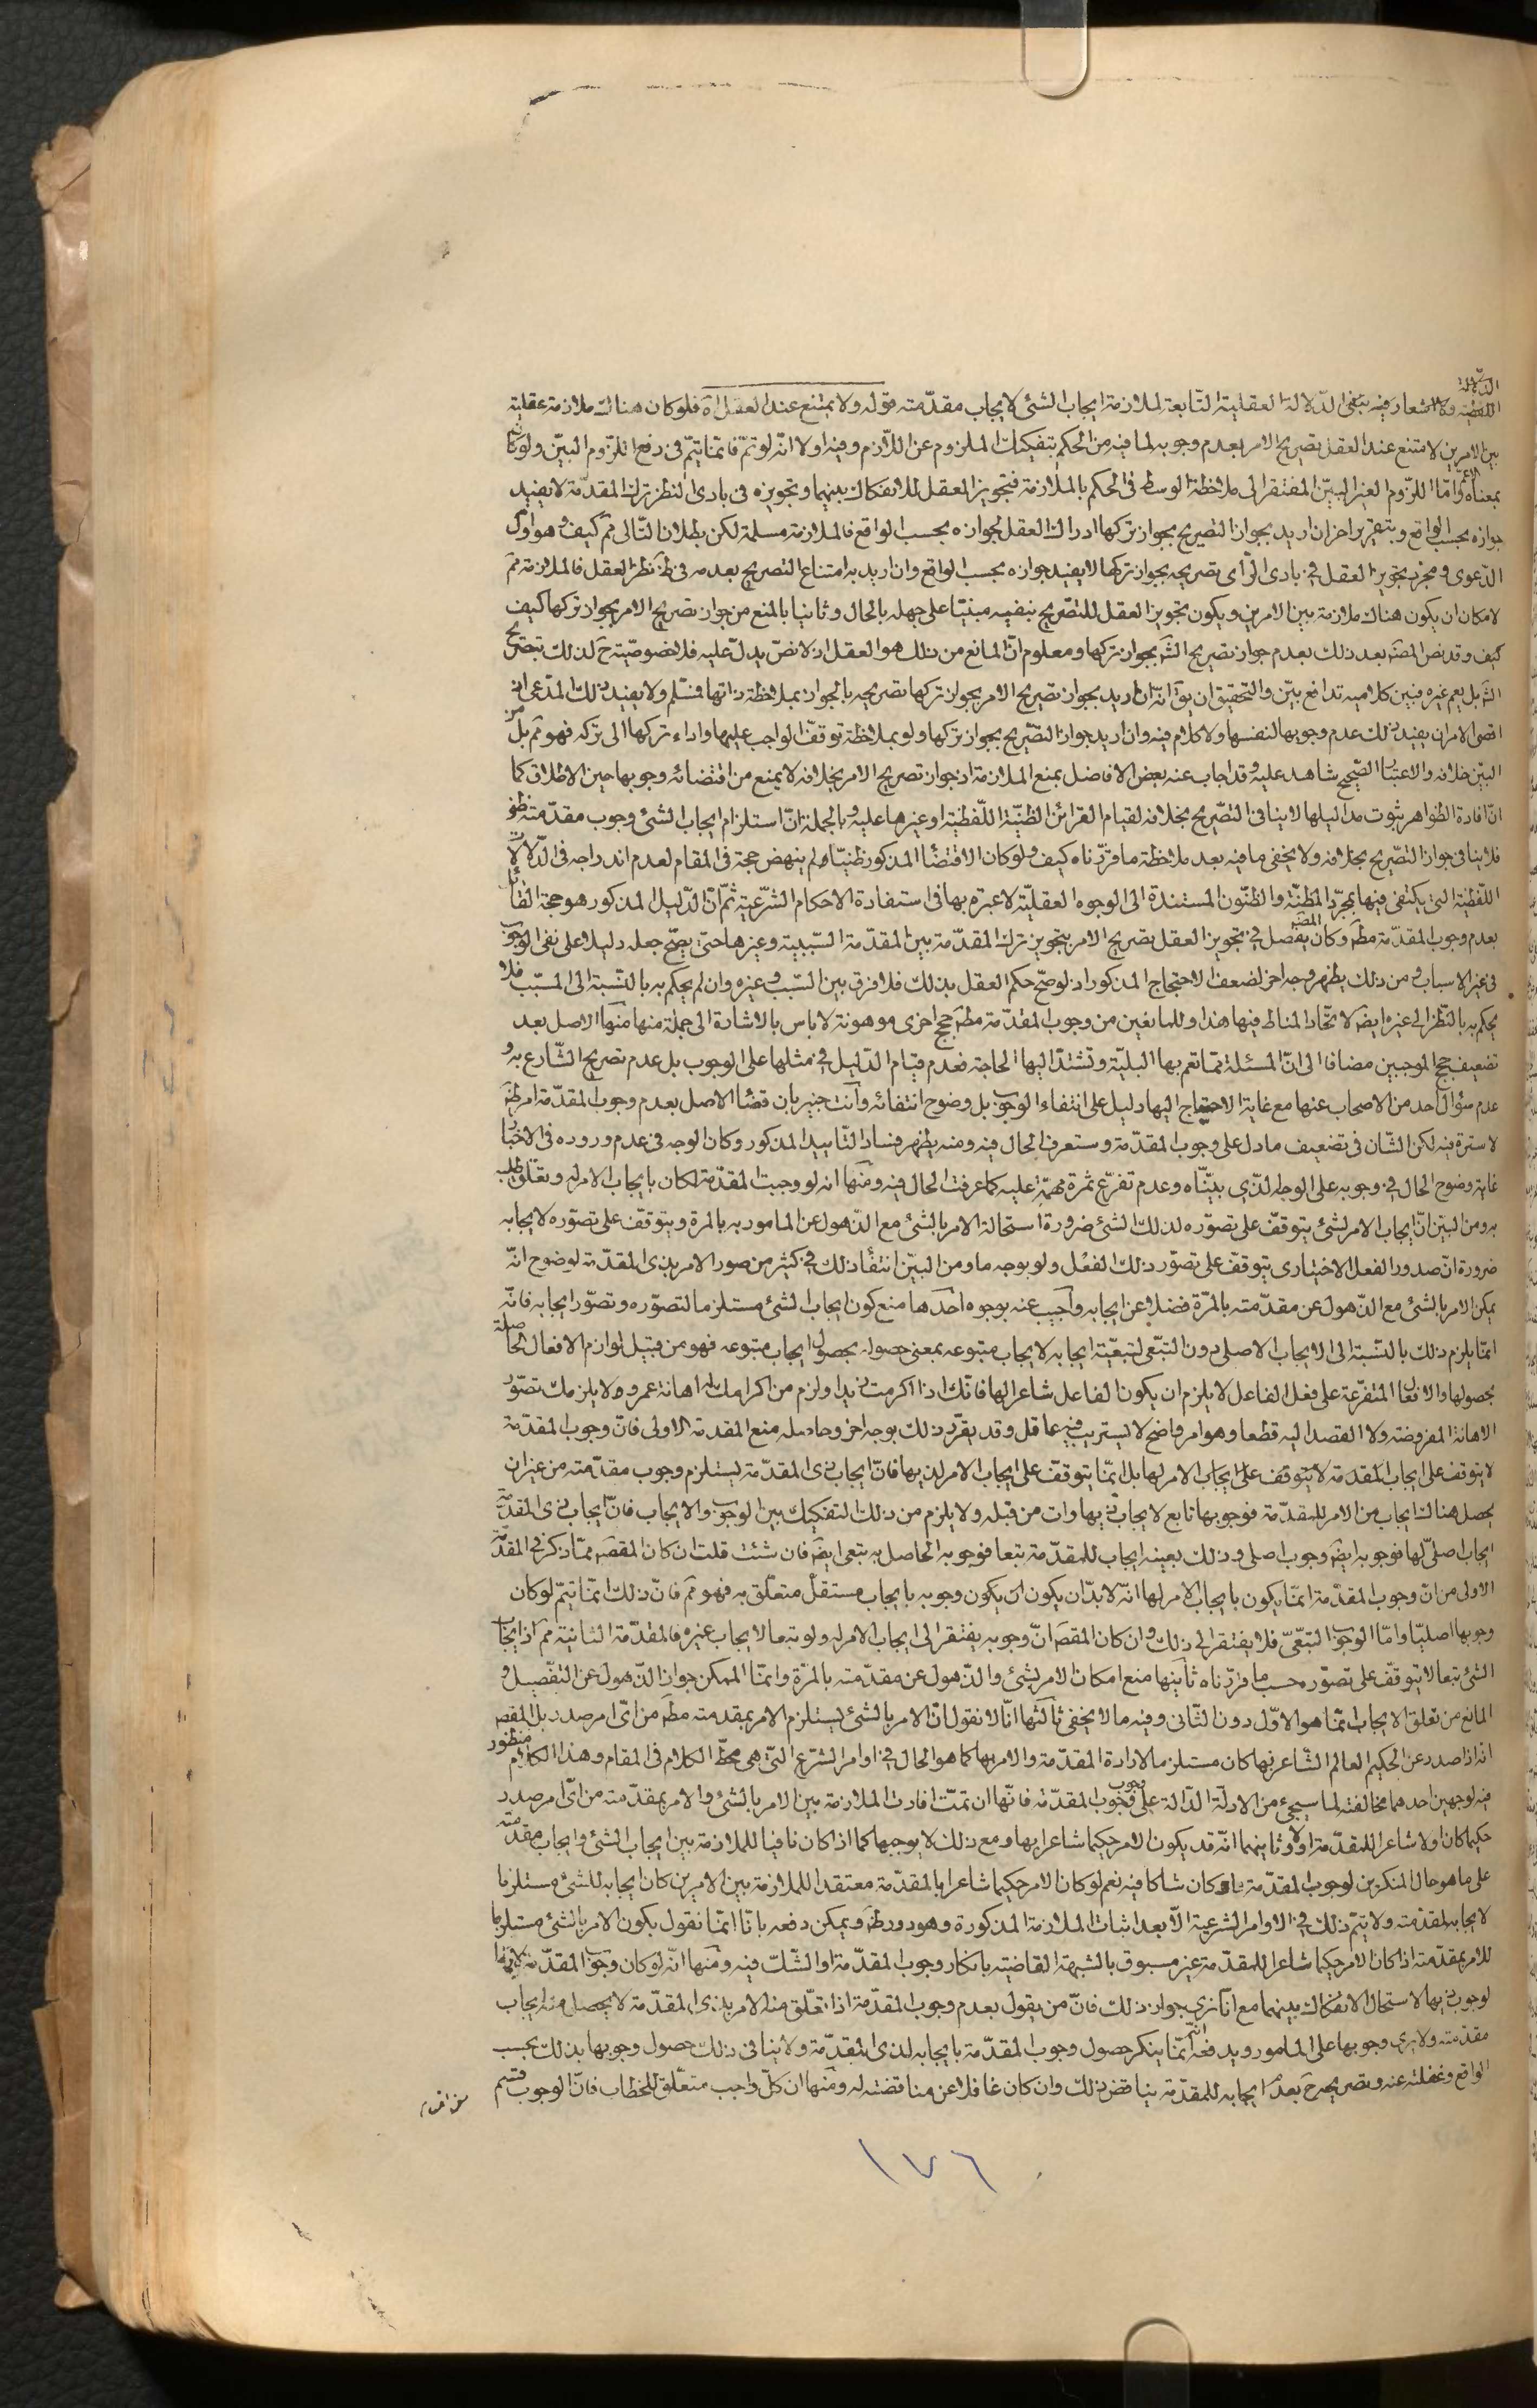 الدلالة
اللفظية ولا اشعار فيه بنفى الدّلالة العقلية التّابعة لملازمة ايجاب الشئ لايجاب مقدّمته قوله ولا يمتنع عند العقل اه فلو كان هناك ملازمة عقلية
بين الامرين لامتنع عند العقل تصريح الامر بعدم وجوبه لما فيه من الحكم بتفكيك الملزوم عن اللّازم وفيه اولا انّه لو تمّ فانّما يتمّ فى دفع اللّزوم البيّن ولو كان
بمعناه الاعمّ وامّا اللّزوم الغير البيّن المفتقر الى ملاحظة الوسط فى الحكم بالملازمة فتجويز العقل للانفكاك بينهما وتجويزه فى بادى النظر ترك المقدّمة لا يفيد
جوازه بحسب الواقع وبتقرير اخر ان اريد بجواز التصريح بجواز تركها ادراك العقل لجوازه بحسب الواقع فالملازمة مسلمة لكن بطلان التّالى مم كيف وهو اول
الدّعوى ومجرد تجويز العقل فى بادى الرّأى تصريحه بجواز تركها لا يفيد جوازه بحسب الواقع وان اريد به امتناع التصريح بعدمه فى ظ نظر العقل فالملازمة مم
لامكان ان يكون هناك ملازمة بين الامرين ويكون تجويز العقل للتصريح بنفيه مبنيّا على جهله بالحال وثانيا بالمنع من جواز تصريح الامر بجواز تركها كيف
كيف وقد نص المص بعد ذلك بعدم جواز تصريح الش بجواز تركها ومعلوم انّ المانع من ذلك هو العقل اذ لا نصّ يدلّ عليه فلا خصوصيّة ح لذلك بتصريح
الش بل يعم غيره فبين كلاميه تدافع بيّن والتحقيق ان يق انّه ان اريد بجواز تصريح الامر بجواز تركها تصريحه بالجواز بملاحظة ذاتها فمسلم ولا يفيد ذلك المدّعى اذ
اقصى الامر ان يفيد ذلك عدم وجوبها لنفسها ولا كلام فيه وان اريد جواز التصريح بجواز تركها ولو بملاحظة توقف الواجب عليها واداء تركها الى تركه فهو مم بل من
البيّن خلافه والاعتبار الصّحيح شاهد عليه وقد اجاب عنه بعض الافاضل بمنع الملازمة اذ جواز تصريح الامر بخلافه لا يمنع من اقتضائه وجوبها حين الاطلاق كما
انّ افادة الظواهر ثبوت مداليلها لا ينافى التصريح بخلافه لقيام القرائن الظنيّة اللّفظية او غيرها عليه وبالجملة انّ استلزام ايجاب الشئ وجوب مقدّمته ظنى
فلا ينافى جواز التصريح بخلافه ولا يخفى ما فيه بعد ملاحظة ما قرّرناه كيف ولو كان الاقتضاء المذكور ظنيّا لم ينهض حجة فى المقام لعدم اندراجه فى الدّلالات
اللّفظية التى يكتفى فيها بمجرّد المظنّة والظنّون المستندة الى الوجوه العقليّة لا عبرة بها فى استفادة الاحكام الشّرعية ثمّ انّ الدّليل المذكور هو حجة القائل
بعدم وجوب المقدّمة مطم وكان المص يفصل فى تجويز العقل تصريح الامر بتجويز ترك المقدّمة بين المقدّمة السّببية وغيرها حتى يصحّ جعله دليلا على نفى الوجوب
فى غير الاسباب ومن ذلك يظهر وجه اخر لضعف الاحتجاج المذكور اذ لو صحّ حكم العقل بذلك فلا فرق بين السّبب وغيره وان لم يحكم به بالنّسبة الى المسبّب فلا
يحكم به بالنّظر الى غيره ايض لاتحاد المناط فيها هذا وللمانعين من وجوب المقدّمة مطم حجج اخرى موهونة لا باس بالاشارة الى جملة منها منها الاصل بعد
تضعيف حجج الموجبين مضافا الى انّ المسئلة ممّا تعم بها البليّة وتشتدّ اليها الحاجة فعدم قيام الدّليل فى مثلها على الوجوب بل عدم تصريح الشّارع به و
عدم سؤال احد من الاصحاب عنها مع غاية الاحتياج اليها دليل على انتفاء الوجوب بل وضوح انتفائه وانت خبير بان قضاء الاصل بعدم وجوب المقدّمة امر ظ
لا سترة فيه لكن الشّان فى تضعيف ما دل على وجوب المقدّمة وستعرف الحال فيه ومنه يظهر فساد التّاييد المذكور وكان الوجه فى عدم وروده فى الاخبار
غاية وضوح الحال فى وجوبه على الوجه الذى بيّنّاه وعدم تفرّع ثمرة مهمّة عليه كما عرفت الحال فيه ومنها انه لو وجبت المقدّمة لكان بايجاب الامر له وتعلّق طلبه
به ومن البيّن انّ ايجاب الامر لشئ يتوقّف على تصوّره لذلك الشئ ضرورة استحالة الامر بالشئ مع الذّهول عن المامور به بالمرة ويتوقّف على تصوّره لايجابه
ضرورة انّ صدور الفعل الاختيارى يتوقّف على تصوّر ذلك الفعل ولو بوجه ما ومن البيّن انتفاء ذلك فى كثير من صور الامر بذى المقدّمة لوضوح انّه
يمكن الامر بالشئ مع الذّهول عن مقدّمته بالمرّة فضلا عن ايجابه واجيب عنه بوجوه احدها منع كون ايجاب الشئ مستلزما لتصوّره وتصوّر ايجابه فانّه
انمّا يلزم ذلك بالنّسبة الى الايجاب الاصلى دون التبّعى لتبعيّة ايجابه لايجاب متبوعه بمعنى حصوله بحصول ايجاب متبوعه فهو من قبيل لوازم الافعال الحاصلة
بحصولها والافعال المتفرّعة على فعل الفاعل لا يلزم ان يكون الفاعل شاعرا لها فانّك اذا اكرمت زيدا ولزم من اكرامك له اهانة عمرو ولا يلزمك تصوّر
الاهانة المفروضة ولا القصد اليه قطعا وهو امر واضح لا يستريب فيه عاقل وقد يقرّر ذلك بوجه اخر وحاصله منع المقدمة الاولى فانّ وجوب المقدّمة
لا يتوقف على ايجاب المقدّمة لا يتوقف على ايجاب الامر لها بل انّما يتوقّف على ايجاب الامر لذيها فانّ ايجاب ذى المقدّمة يستلزم وجوب مقدّمته من غير ان
يحصل هناك ايجاب من الامر للمقدّمة فوجوبها تابع لايجاب ذيها وات من قبله ولا يلزم من ذلك التفكيك بين الوجوب والايجاب فانّ ايجاب ذى المقدّمة
ايجاب اصلى لها فوجوبه ايض وجوب اصلى وذلك بعينه ايجاب للمقدّمة تبعا فوجوبه الحاصل به تبعى ايض فان شئت قلت ان كان المقص ممّا ذكر فى المقدّمة
الاولى من انّ وجوب المقدّمة انمّا يكون بايجاب الامر لها انّه لا بدّ ان يكون ان يكون وجوبه بايجاب مستقلّ متعلّق به فهو مم فانّ ذلك انمّا يتمّ لو كان
وجوبها اصليّا وامّا الوجوب التبعّى فلا يفتقر الى ذلك وان كان المقص انّ وجوبه يفتقر الى ايجاب الامر له ولو تبعا لايجاب غيره فالمقدّمة الثانية مم اذ ايجاب
الشئ تبعا لا يتوقّف على تصوّره حسب ما قرّرناه ثانيها منع امكان الامر لشئ والذّهول عن مقدّمته بالمرّة وانمّا الممكن جواز الذّهول عن التفّصيل و
المانع من تعلق الايجاب انمّا هو الاوّل دون الثّانى وفيه ما لا يخفى ثالثها انّا لا نقول انّ الامر بالشئ يستلزم الامر بمقدمته مطم من اىّ امر صدر بل المقص
انه اذا صدر عن الحكيم العالم الشّاعر بها كان مستلزما لارادة المقدّمة والامر بها كما هو الحال فى اوامر الشّرع التى هى محطّ الكلام فى المقام وهذا الكلام منظور
فيه لوجهين احدهما مخالفته لما سيجئ من الادلة الدّالة على وجوب المقدّمة فانّها ان تمّت افادت الملازمة بين الامر بالشئ والامر بمقدّمته من اىّ امر صدر
حكيما كان اولا شاعرا للمقدّمة اولا وثانيهما انّه قد يكون الامر حكيما شاعرا بها ومع ذلك لا يوجبها كما اذا كان نافيا للملازمة بين ايجاب الشئ وايجاب مقدّمته
على ما هو حال المنكرين لوجوب المقدّمة او كان شاكا فيه نعم لو كان الامر حكيما شاعرا بالمقدّمة معتقدا للملازمة بين الامرين كان ايجابه للشئ مستلزما
لايجابه لمقدّمته ولا يتمّ ذلك فى الاوامر الشرعية الّا بعد اثبات الملازمة المذكورة وهو دور ظ ويمكن دفعه بانّا انمّا نقول بكون الامر بالشئ مستلزما
للامر بمقدّمته اذا كان الامر حكيما شاعرا للمقدّمة غير مسبوق بالشبهة القاضية بانكار وجوب المقدّمة او الشّك فيه ومنها انّه لو كان وجوب المقدّمة لازما
لوجوب ذيها لاستحال الانفكاك بينهما مع انّا نرى جواز ذلك فانّ من يقول بعدم وجوب المقدّمة اذا تعلّق منه الامر بذى المقدّمة لا يحصل منه ايجاب
مقدّمته ولا يرى وجوبها على المامور ويدفعه انّه انمّا ينكر حصول وجوب المقدّمة بايجابه لذى المقدّمة ولا ينافى ذلك حصول وجوبها بذلك بحسب
الواقع وغفلته عنه وتصريحه ح بعد ايجابه للمقدّمة يناقض ذلك وان كان غافلا عن مناقضته له ومنها ان كلّ واجب متعلّق للخطاب فانّ الوجوب قسم
١٧٦